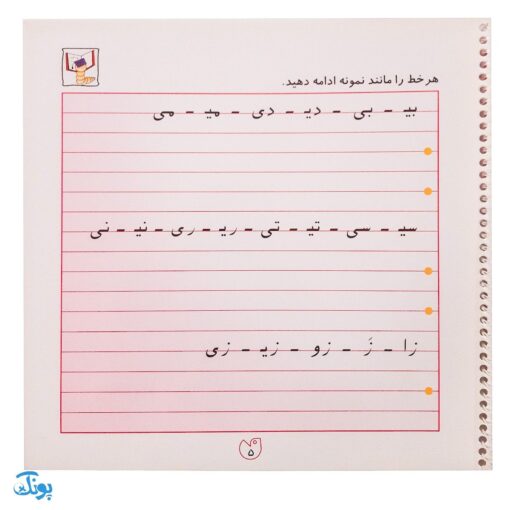 هر خط را مانند نمونه ادامه دهید.
بیـ ـ بی ـ دیـ ـ دی ـ میـ ـ می
سیـ ـ سی ـ تیـ ـ تی ـ ریـ ـ ری ـ نیـ ـ نی
زا ـ زَ ـ زو ـ زیـ ـ زی
۵
پونک